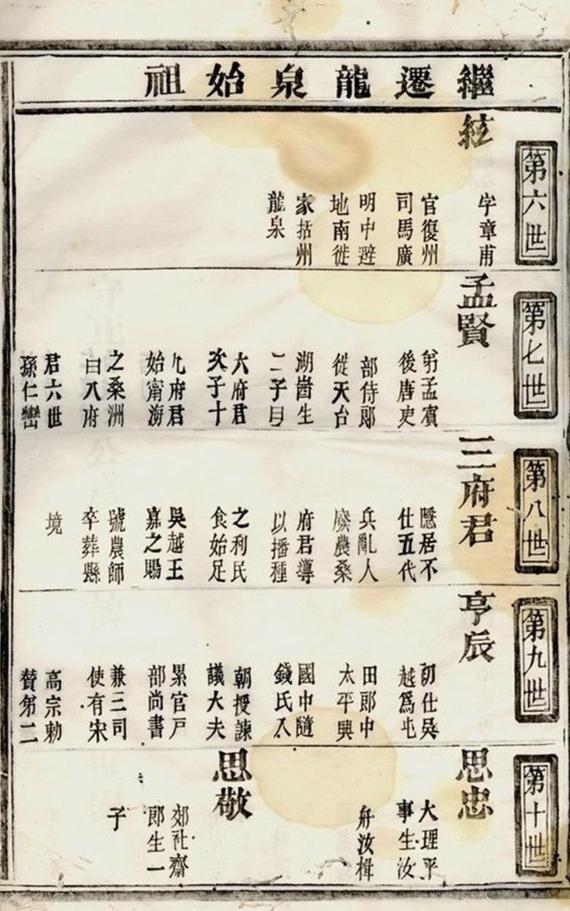 繼遷龍泉始祖
第六世
絃
字章甫
官復州
司馬廣
明中避
地南徙
家括州
龍泉
第七世
孟賢
弟孟賓
後唐吏
部侍郎
從天台
湖生
二子曰
六府君
次子十
九府君
始甯海
之桑洲
曰八府
君六世
孫仁巒
第八世
三府君
隱居不
仕五代
兵亂人
廢農桑
府君導
以播種
之利民
食始足
吳越王
嘉之賜
號農師
卒葬縣
境
第九世
亨辰
初仕吳
越爲屯
田郎中
太平興
國中隨
錢氏入
朝授諫
議大夫
累官戶
部尚書
兼三司
使有宋
高宗勅
贊第二
第十世
思忠
大理平
事生汝
舟汝楫
思敬
郊社齋
郎生一
子